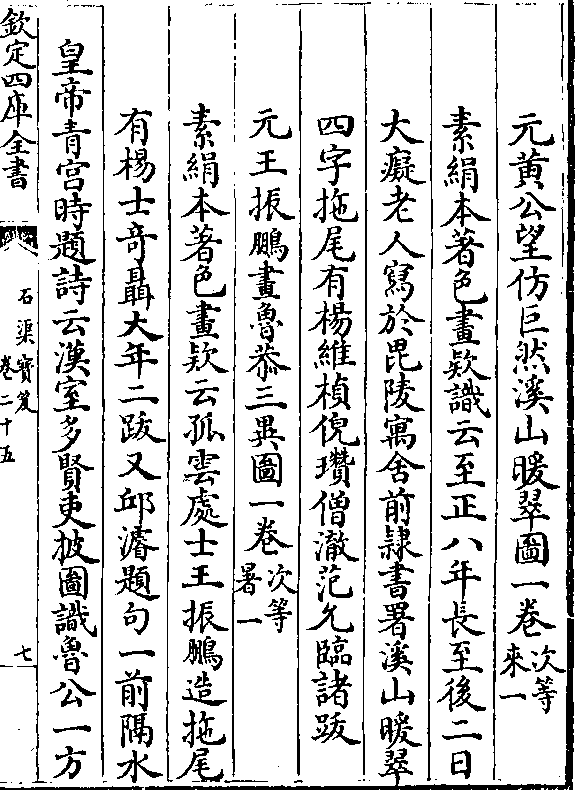 元黄公望仿巨然溪山暖翠圖一卷次等來一
素絹本著色畫欵識云至正八年長至後二日
大癡老人寫於毘陵寓舍前隸書署溪山暖翠
四字拖尾有楊維楨倪瓚僧澈范允臨諸跋
元王振鵬畫魯恭三異圖一卷次等暑一
素絹本著色畫欵云孤雲處士王振鵬造拖尾
有楊士竒聶大年二跋又邱濬題句一前隔水
皇帝青宫時題詩云漢室多賢吏披圖識魯公一方
欽定四庫全書
石渠寶笈
卷二十五
七